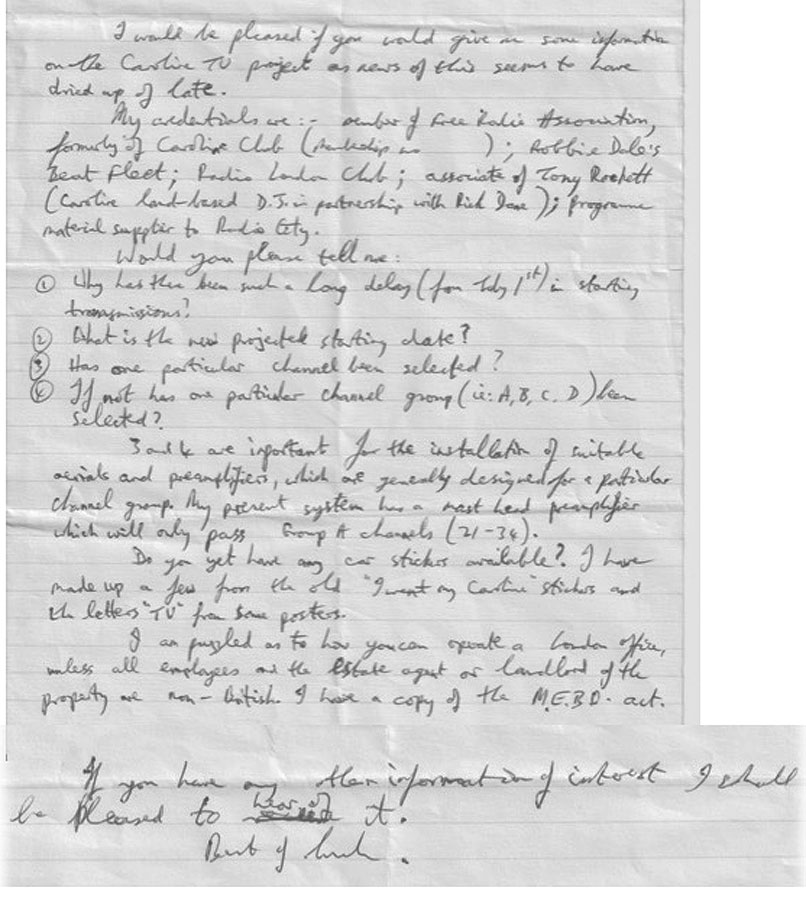 I would be pleased if you would give me some information
on the Caroline TV project as news of this seems to have
dried up of late.
My credentials are :- member of Free Radio Association,
formerly of Caroline Club (membership no ) ; Robbie Dale's
Beat Fleet ; Radio London Club ; associate of Tony Rockett
(Caroline land-based D.J. in partnership with Rick Dane) ; programme
material supplier to Radio City.
Would you please tell me :
① Why has there been such a long delay (from July 1st) in starting
transmissions?
② What is the new projected starting date?
③ Has one particular channel been selected ?
④ If not has one particular channel group (ie: A, B, C. D) been
selected?
3 and 4 are important for the installation of suitable
aerials and preamplifiers, which are generally designed for a particular
channel group. My present system has a mast head preamplifier
which will only pass Group A channels (21-34).
Do you yet have any car stickers available? I have
made up a few from the old "I want my Caroline" stickers and
the letters "TV" from some posters.
I am puzzled as to how you can operate a London office,
unless all employees and the estate agent or landlord of the
property are non-British. I have a copy of the M.E.B.O. act.
If you have any other information of interest I shall
be pleased to hear of it.
Best of luck.